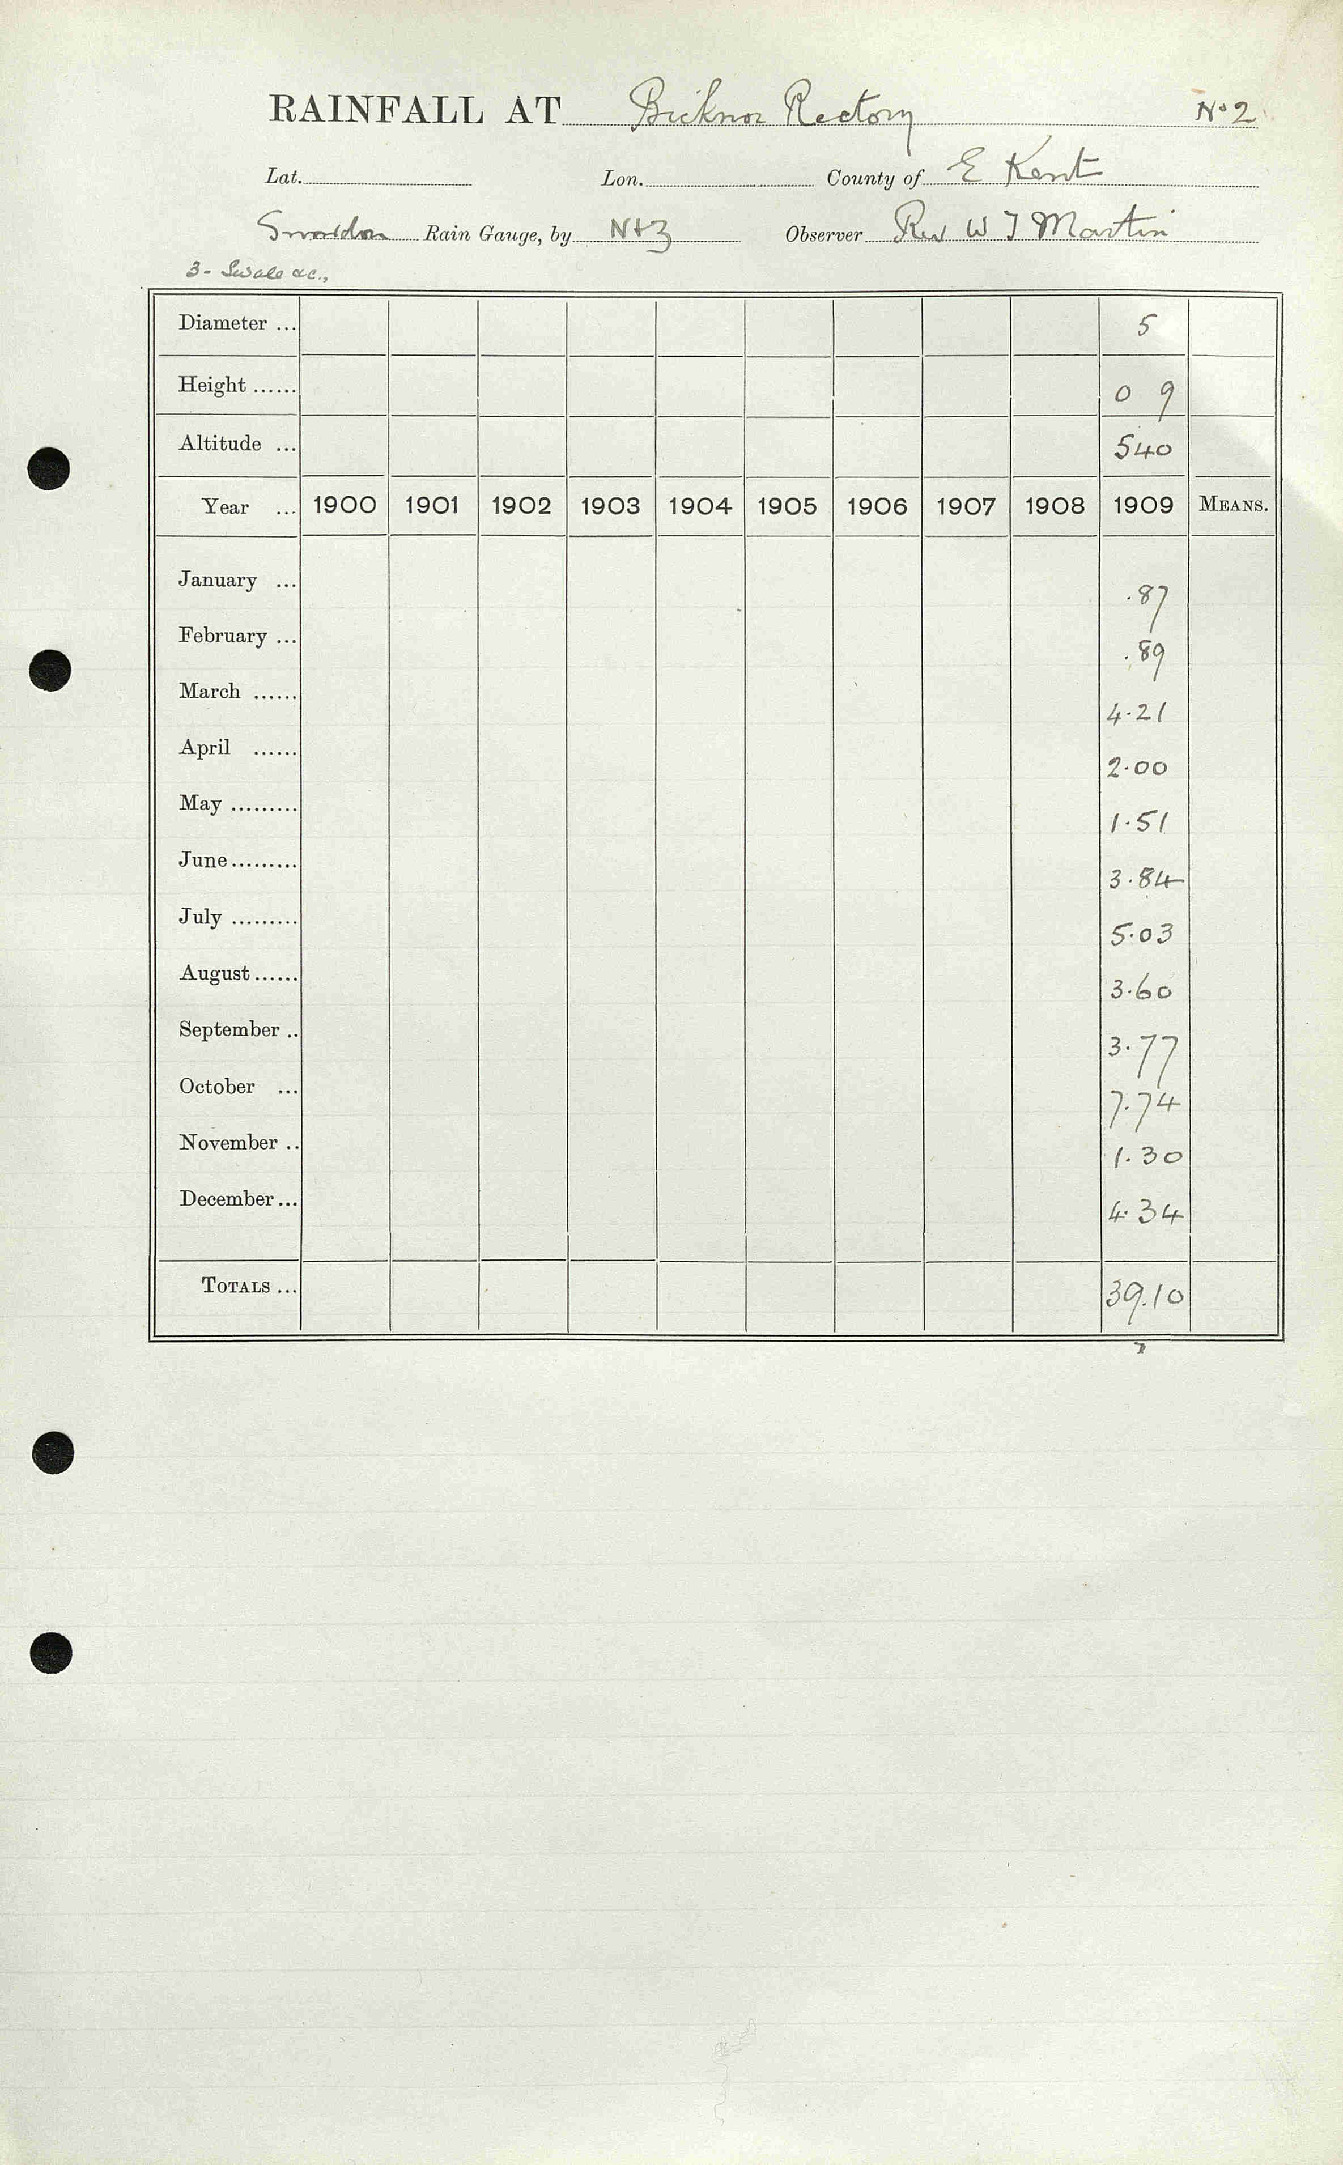 RAINFALL AT Bicknor Rectory No 2
Lat. Lon. County of E Kent
Snowdon Rain Gauge, by N & Z Observer Rev W J Martin
3 - Swale &c.,
Diameter ... 5
Height ...... 0 9
Altitude ... 540
Year ... 1900 1901 1902 1903 1904 1905 1906 1907 1908 1909 MEANS.
January ... .87
February ... .89
March ...... 4.21
April ...... 2.00
May ......... 1.51
June ......... 3.84
July ......... 5.03
August ...... 3.60
September .. 3.77
October ... 7.74
November .. 1.30
December ... 4.34
TOTALS ... 39.10